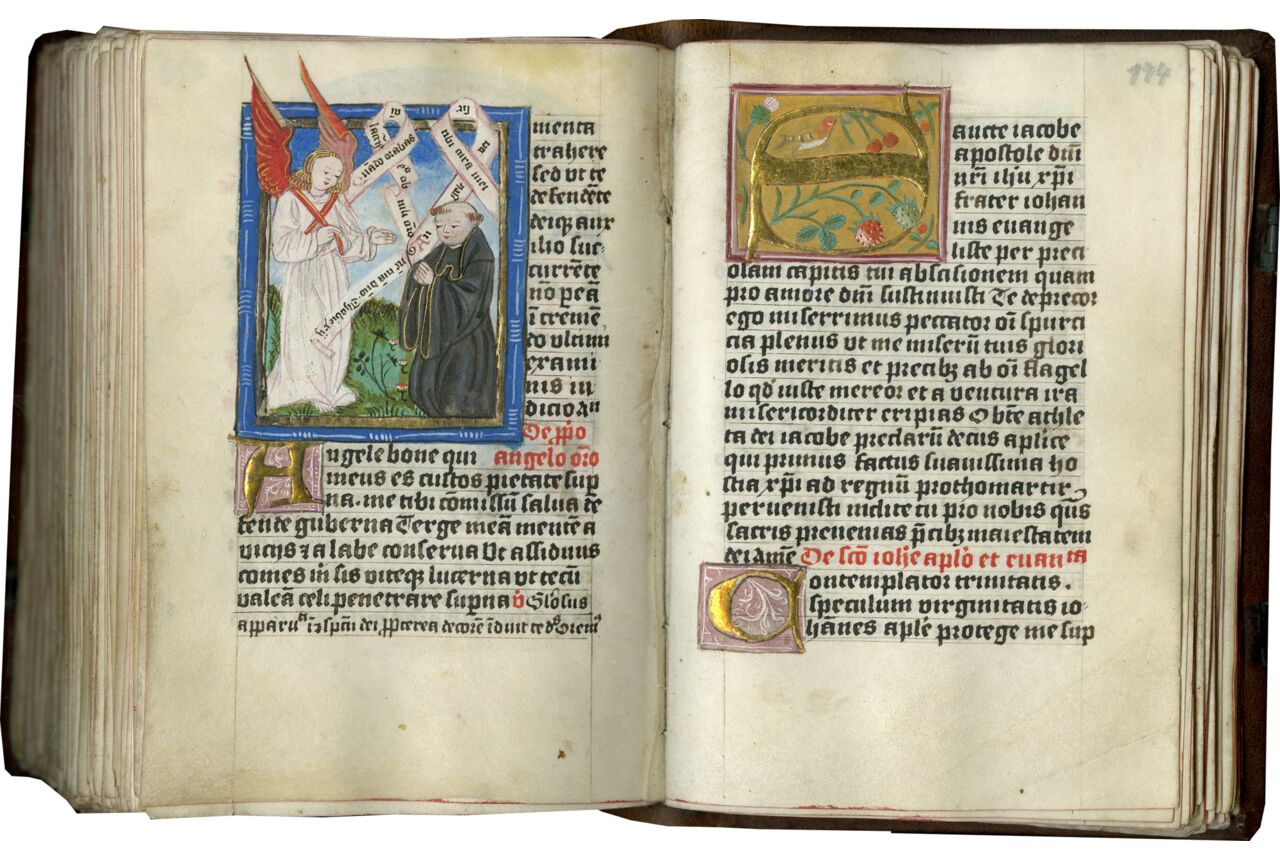 menta
trahere
sed ut te
defendēte
deiqꝫ aux
ilio suc
currēte
nō peā
ī tremē
do ultimi
exami
nis iu
dicio Aⁿ
De ꝓpo
angelo oro
Angele bone qui
meus es custos pietate sup
na. me tibi cōmissū salua de
fende guberna Terge meā mentē a
vicijs ⁊ a labe conserua Ut assiduus
comes m sis viteqꝫ lucerna ut tecū
valeā celi penetrare superna
174
ancte iacobe
apostole dni
nri ihu xpi
frater iohan
nis euange
liste per preci
osam capitis tui abscisionem quam
pro amore dni sustinuisti Te deprecor
ego miserrimus peccator oī spurci
cia plenus ut me miserū tuis glori
osis meritis et precibꝫ ab oī flagel
lo qd iuste mereor et a ventura ira
misericorditer eripias O bte athle
ta dei iacobe preclarū decus aplice
qui primus factus suauissima ho
stia xpi ad regnū prothomartir
peruenisti inclite tu pro nobis qs
sacris preuenias pcibꝫ maiestatem
dei Amē De scō iohe aplo et euanᵗᵃ
Contemplator trinitatis.
speculum virginitatis io
hānes aple protege me sup